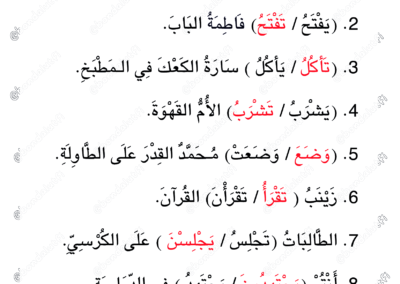 2. (يَفْتَحُ / تَفْتَحُ) فَاطِمَةُ البَابَ.
3. (تَأْكُلُ / يَأْكُلُ ) سَارَةُ الكَعْكَ فِي الـمَطْبَخِ.
4. (يَشْرَبُ / تَشْرَبُ) الأُمُّ القَهْوَةَ.
5. (وَضَعَ / وَضَعَتْ) مُـحَمَّدٌ القِدْرَ عَلَى الطَّاوِلَةِ.
6. زَيْنَبُ ( تَقْرَأُ / تَقْرَأْنَ) القُرآنَ.
7. الطَّالِبَاتُ (تَجْلِسُ / يَجْلِسْنَ ) عَلَى الكُرْسِيِّ.
8. أَنْتُمْ